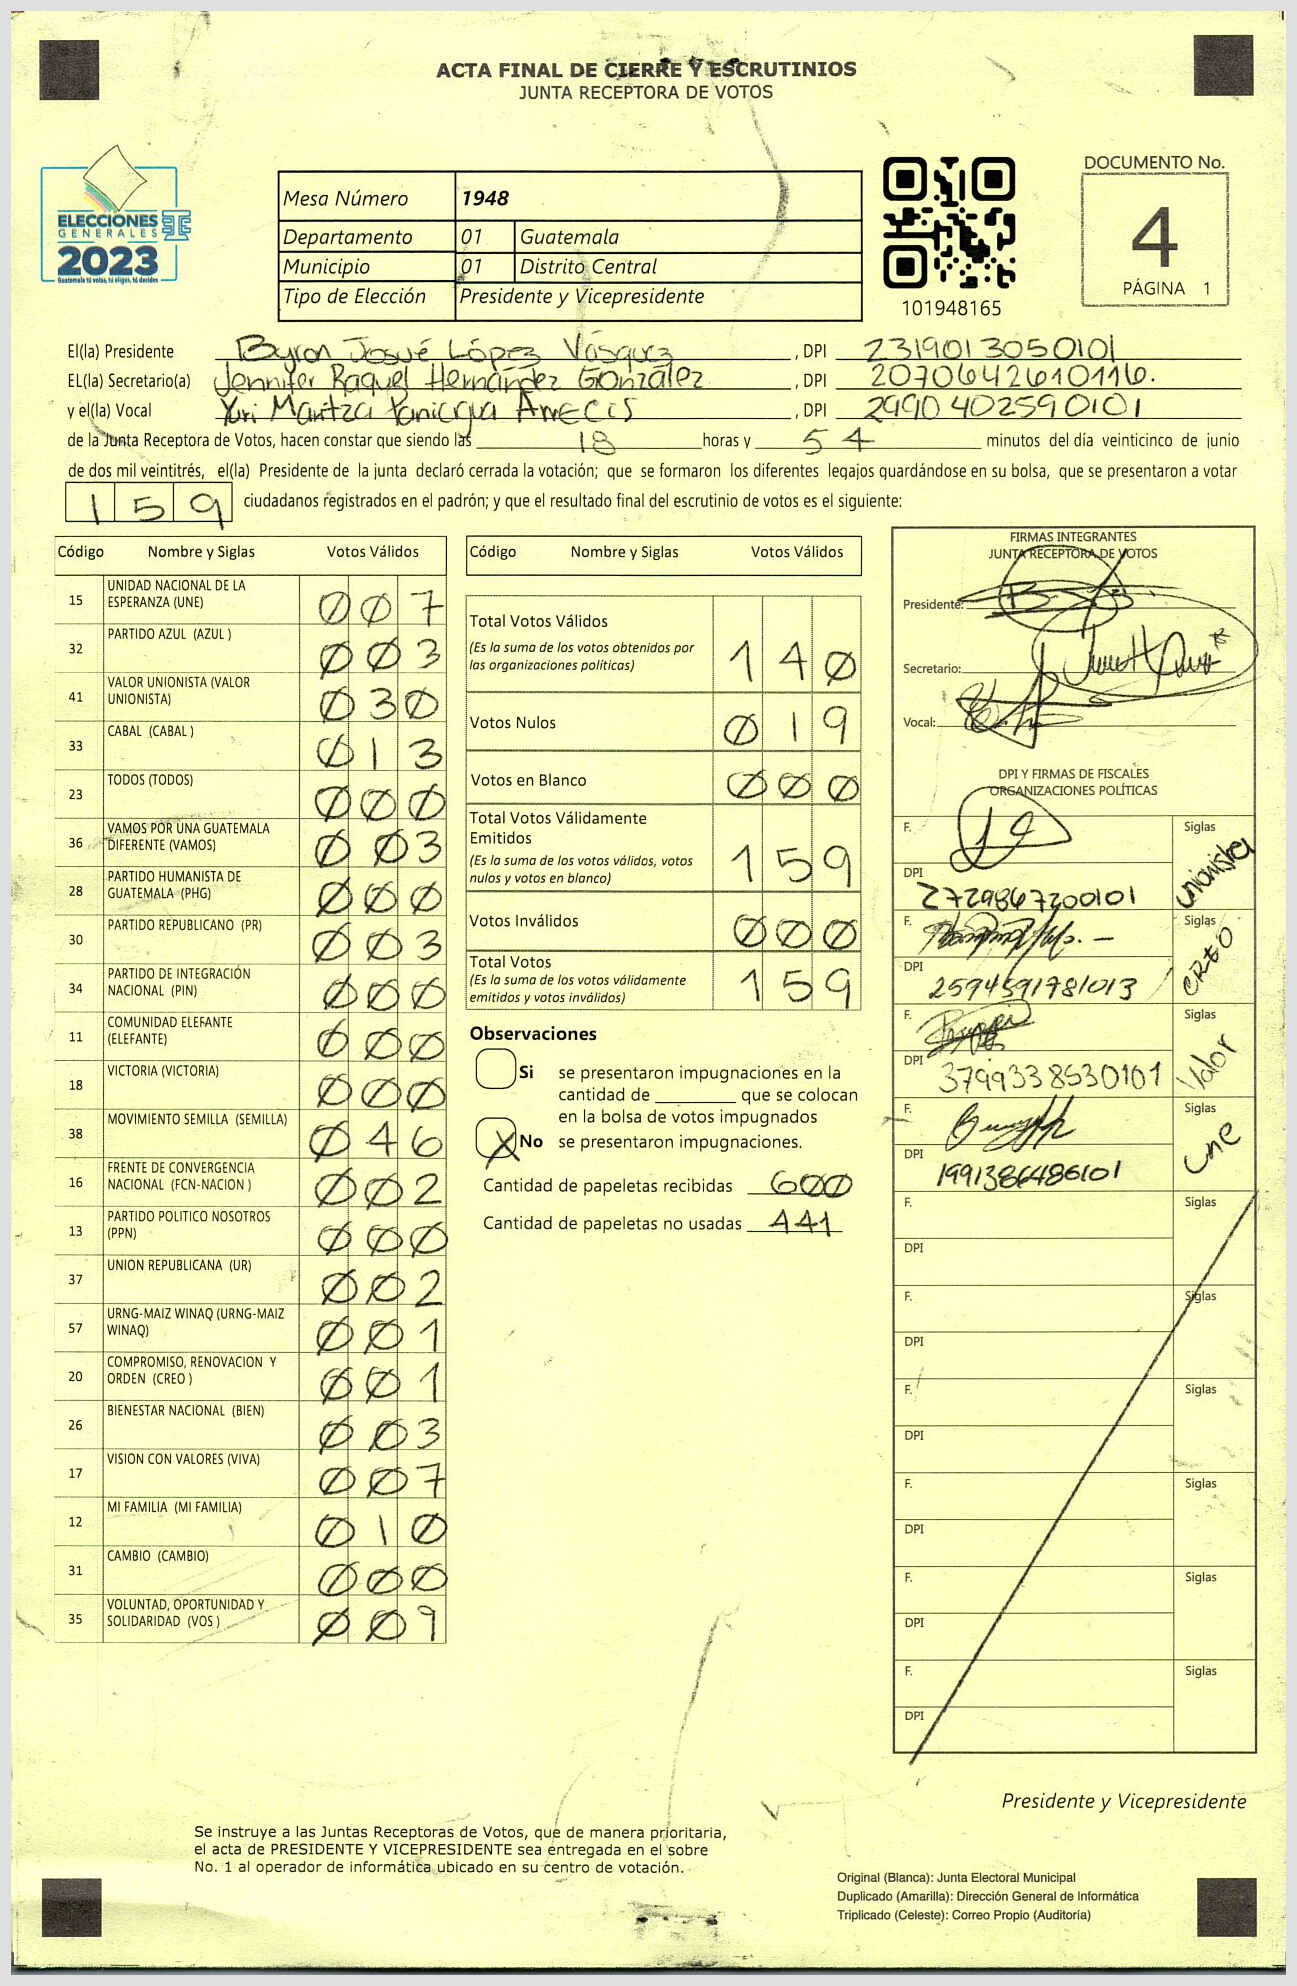 ACTA FINAL DE CIERRE Y ESCRUTINIOS
JUNTA RECEPTORA DE VOTOS
ELECCIONES
GENERALES
2023
Guatemala tú votas, tú eliges, tú decides
Mesa Número 1948
Departamento 01 Guatemala
Municipio 01 Distrito Central
Tipo de Elección Presidente y Vicepresidente
101948165
DOCUMENTO No.
4
PÁGINA 1
El(la) Presidente Byron Josué López Vásquez , DPI 2319013050101
EL(la) Secretario(a) Jennifer Raquel Hernández González , DPI 2070642610116.
y el(la) Vocal Yuri Maritza Paniagua , DPI 2990402590101
de la Junta Receptora de Votos, hacen constar que siendo las 18 horas y 54 minutos del día veinticinco de junio
de dos mil veintitrés, el(la) Presidente de la junta declaró cerrada la votación; que se formaron los diferentes legajos guardándose en su bolsa, que se presentaron a votar
159 ciudadanos registrados en el padrón; y que el resultado final del escrutinio de votos es el siguiente:
Código Nombre y Siglas Votos Válidos
15 UNIDAD NACIONAL DE LA ESPERANZA (UNE) 007
32 PARTIDO AZUL (AZUL ) 003
41 VALOR UNIONISTA (VALOR UNIONISTA) 030
33 CABAL (CABAL ) 013
23 TODOS (TODOS) 000
36 VAMOS POR UNA GUATEMALA DIFERENTE (VAMOS) 003
28 PARTIDO HUMANISTA DE GUATEMALA (PHG) 000
30 PARTIDO REPUBLICANO (PR) 003
34 PARTIDO DE INTEGRACIÓN NACIONAL (PIN) 000
11 COMUNIDAD ELEFANTE (ELEFANTE) 000
18 VICTORIA (VICTORIA) 000
38 MOVIMIENTO SEMILLA (SEMILLA) 046
16 FRENTE DE CONVERGENCIA NACIONAL (FCN-NACION ) 002
13 PARTIDO POLITICO NOSOTROS (PPN) 000
37 UNION REPUBLICANA (UR) 002
57 URNG-MAIZ WINAQ (URNG-MAIZ WINAQ) 001
20 COMPROMISO, RENOVACION Y ORDEN (CREO ) 001
26 BIENESTAR NACIONAL (BIEN) 003
17 VISION CON VALORES (VIVA) 007
12 MI FAMILIA (MI FAMILIA) 010
31 CAMBIO (CAMBIO) 000
35 VOLUNTAD, OPORTUNIDAD Y SOLIDARIDAD (VOS ) 009
Código Nombre y Siglas Votos Válidos
Total Votos Válidos 140
(Es la suma de los votos obtenidos por
las organizaciones políticas)
Votos Nulos 019
Votos en Blanco 000
Total Votos Válidamente
Emitidos 159
(Es la suma de los votos válidos, votos
nulos y votos en blanco)
Votos Inválidos 000
Total Votos 159
(Es la suma de los votos válidamente
emitidos y votos inválidos)
Observaciones
Si se presentaron impugnaciones en la
cantidad de ________ que se colocan
en la bolsa de votos impugnados
X No se presentaron impugnaciones.
Cantidad de papeletas recibidas 600
Cantidad de papeletas no usadas 441
FIRMAS INTEGRANTES
JUNTA RECEPTORA DE VOTOS
Presidente:
Secretario:
Vocal:
DPI Y FIRMAS DE FISCALES
ORGANIZACIONES POLÍTICAS
F. Siglas unionista
DPI 2729867200101
F. Siglas CREO
DPI 2594591781013
F. Siglas Valor
DPI 3799338530101
F. Siglas une
DPI 1991386486101
F. Siglas
DPI
F. Siglas
DPI
F. Siglas
DPI
F. Siglas
DPI
F. Siglas
DPI
F. Siglas
DPI
Presidente y Vicepresidente
Se instruye a las Juntas Receptoras de Votos, que de manera prioritaria,
el acta de PRESIDENTE Y VICEPRESIDENTE sea entregada en el sobre
No. 1 al operador de informática ubicado en su centro de votación.
Original (Blanca): Junta Electoral Municipal
Duplicado (Amarilla): Dirección General de Informática
Triplicado (Celeste): Correo Propio (Auditoría)